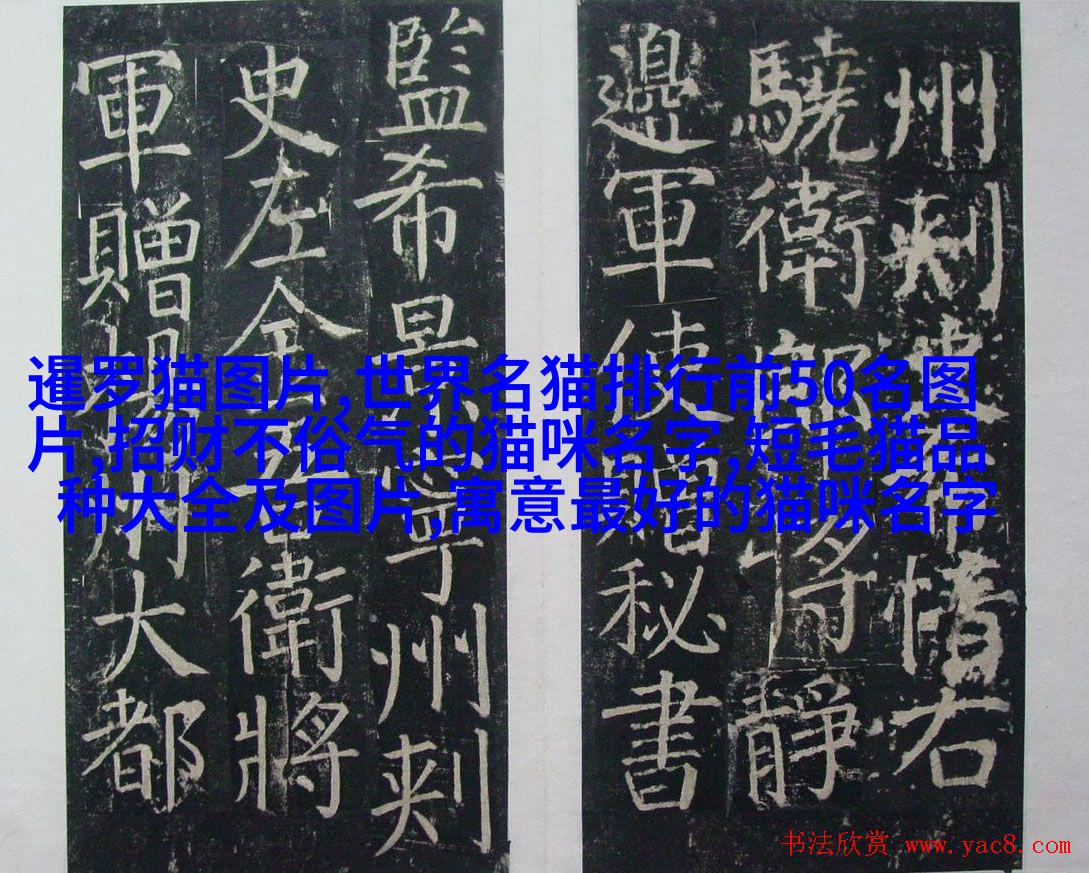 暹罗猫图片,世界名猫排行前50名图
片,招财不俗气的猫咪名字,短毛猫品
种大全及图片,寓意最好的猫咪名字
州刺惰右
驍衛郎將靜
邊軍使贈秘書
監希景寧州刺
史左金吾衛將
軍贈州大都
书法欣赏 www.yac8.com